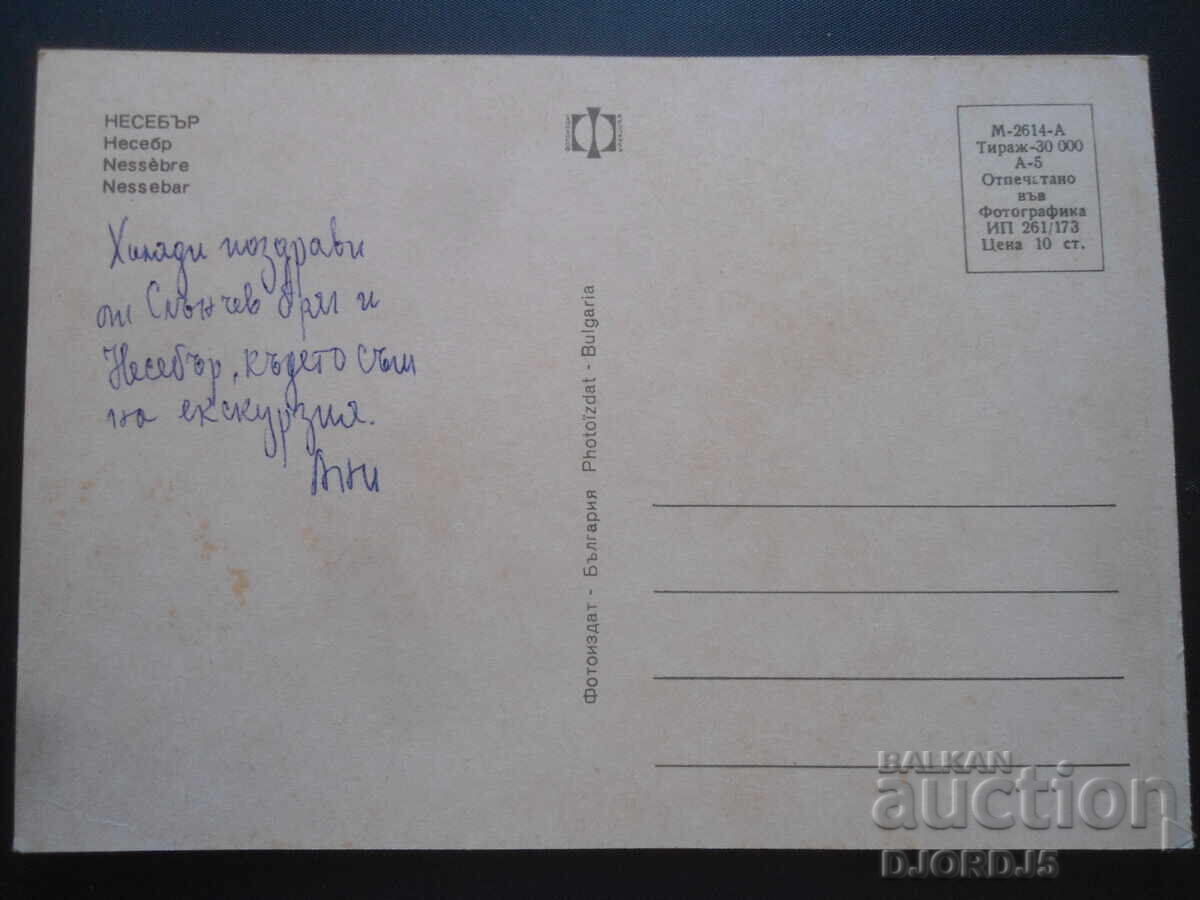 НЕСЕБЪР
Несебр
Nessèbre
Nessebar
Хиляди поздрави
от Слънчев бряг и
Несебър, където съм
на екскурзия.
Ани
Фотоиздат - България Photoïzdat - Bulgaria
М-2614-А
Тираж-30 000
А-5
Отпечатано
във
Фотографика
ИП 261/173
Цена 10 ст.
BALKAN
auction
DJORDJ5